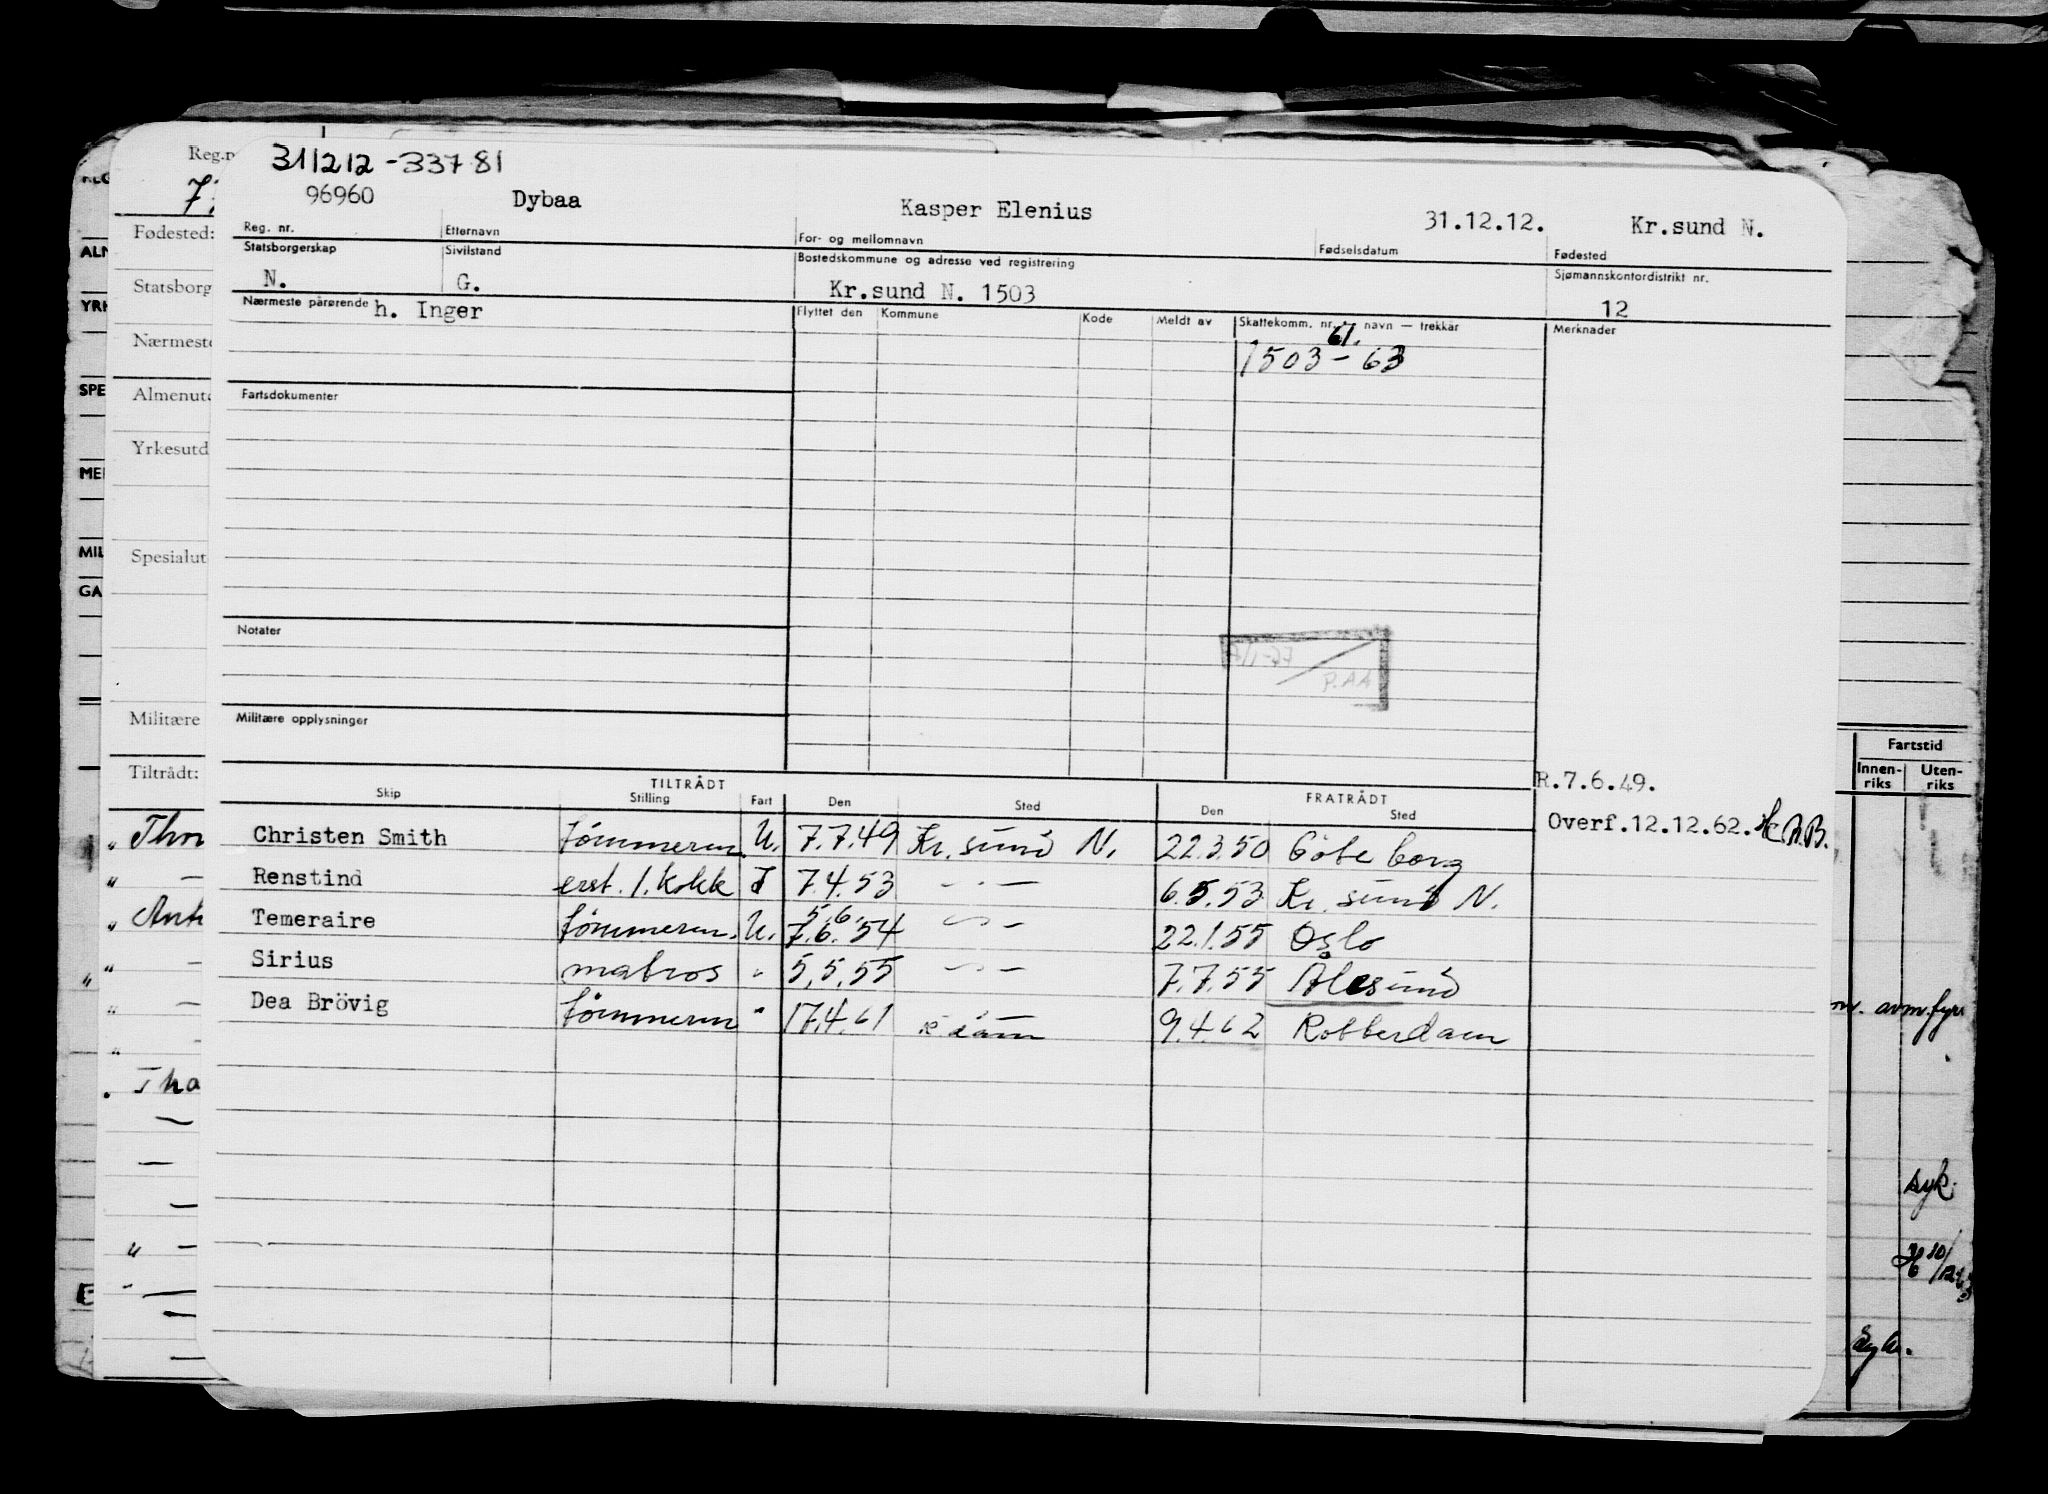 311212-33781
96960 Dybaa Kasper Elenius 31.12.12. Kr.sund N.
Reg. nr. Etternavn For- og mellomnavn Fødselsdatum Fødested
Statsborgerskap Sivilstand Bostedskommune og adresse ved registrering Sjømannskontordistrikt nr.
N. G. Kr.sund N. 1503 12
Nærmeste pårørende h. Inger Flyttet den Kommune Kode Meldt av Skattekomm. nr. navn — trekkår Merknader
61.
1503-63
Fartsdokumenter
Notater
P.AA
Militære opplysninger
R.7.6.49.
TILTRÅDT FRATRÅDT
Skip Stilling Fart Den Sted Den Sted
Overf.12.12.62.
Christen Smith tömmerm. U. 7.7.49 Kr. sund N. 22.3.50 Göteborg
Renstind erst. 1. kokk I 7.4.53 — · — 6.5.53 Kr. sund N.
5.6.
Temeraire tömmerm. U. 7.6.54 — 22.1.55 Oslo
Sirius matros " 5.5.55 — 7.7.55 Ålesund
Dea Brövig tömmerm " 17.4.61 R.dam 9.4.62 Rotterdam
Reg.n
Fødested:
Statsborg
Nærmeste
Almenutd
Yrkesutd
Spesialut
Militære
Tiltrådt:
ALM
YRK
SPE
MEI
MIL
GA
Fartstid
Innen-riks Uten-riks
avm.fyr
syk.